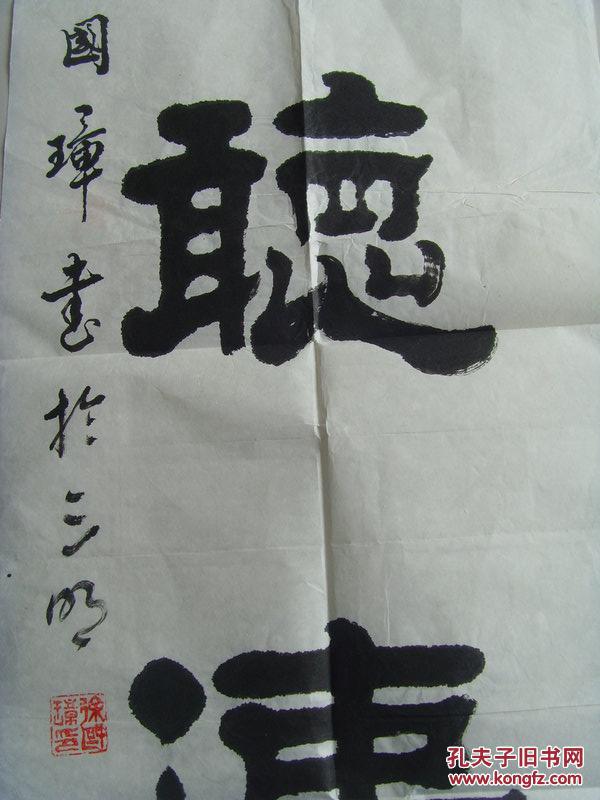 聽
國璋書於三明
徐國
璋印
孔夫子旧书网
www.kongfz.com